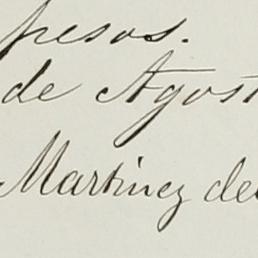 pesos.
de Agost
Martinez del